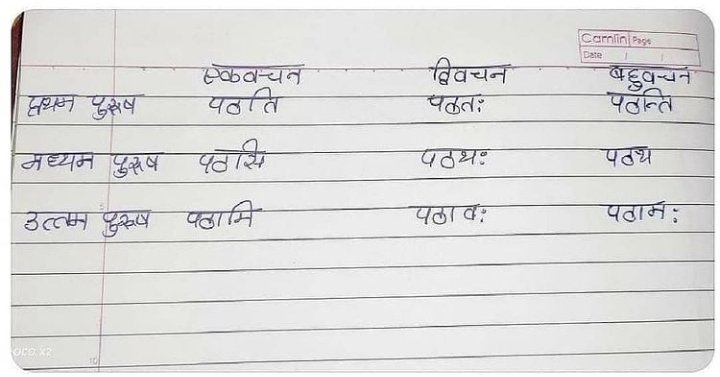 Camlin Page
Date
एकवचन द्विवचन बहुवचन
प्रथम पुरुष पठति पठतः पठन्ति
मध्यम पुरुष पठसि पठथः पठथ
उत्तम पुरुष पठामि पठावः पठामः